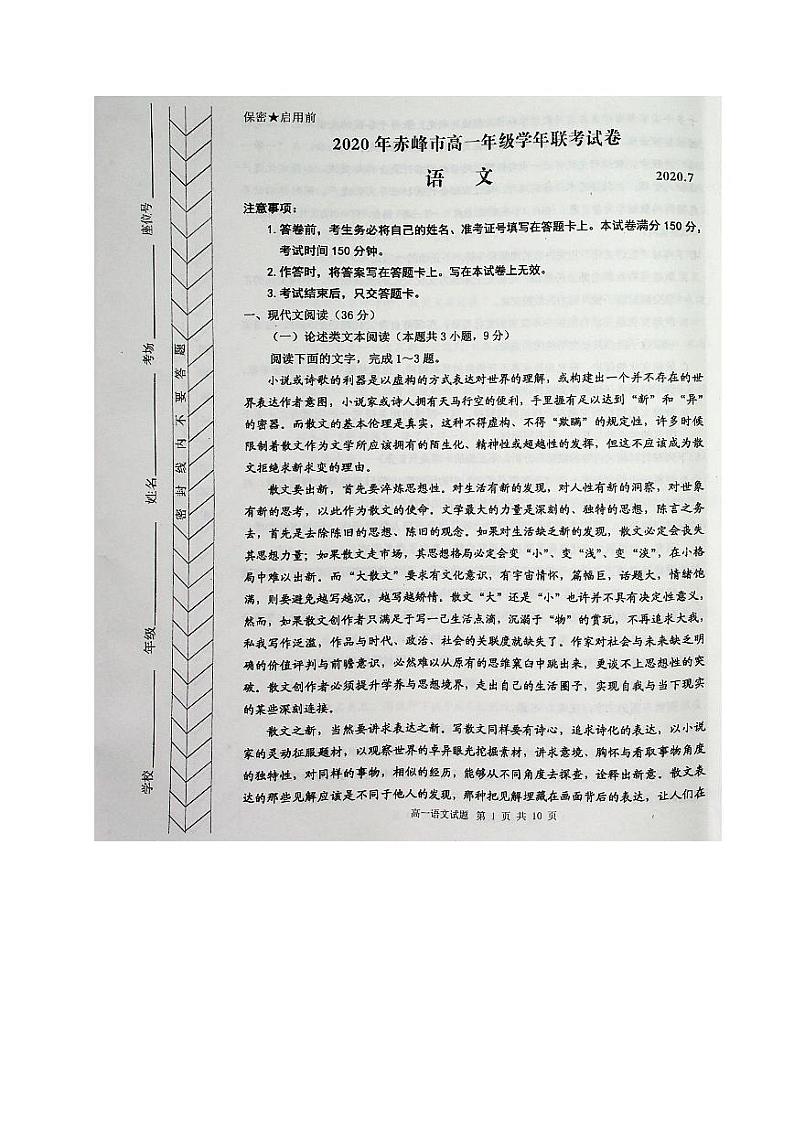 保密★启用前
2020年赤峰市高一年级学年联考试卷
语 文
2020.7
注意事项：
1. 答卷前，考生务必将自己的姓名、准考证号填写在答题卡上。本试卷满分150分，
考试时间150分钟。
2. 作答时，将答案写在答题卡上。写在本试卷上无效。
3. 考试结束后，只交答题卡。
一、现代文阅读（36分）
（一）论述类文本阅读（本题共3小题，9分）
阅读下面的文字，完成1～3题。
小说或诗歌的利器是以虚构的方式表达对世界的理解，或构建出一个并不存在的世
界表达作者意图，小说家或诗人拥有天马行空的便利，手里握有足以达到“新”和“异”
的密器。而散文的基本伦理是真实，这种不得虚构、不得“欺瞒”的规定性，许多时候
限制着散文作为文学所应该拥有的陌生化、精神性或超越性的发挥，但这不应该成为散
文拒绝求新求变的理由。
散文要出新，首先要淬炼思想性。对生活有新的发现，对人性有新的洞察，对世象
有新的思考，以此作为散文的使命。文学最大的力量是深刻的、独特的思想，陈言之务
去，首先是去除陈旧的思想、陈旧的观念。如果对生活缺乏新的发现，散文必定会丧失
其思想力量；如果散文走市场，其思想格局必定会变“小”、变“浅”、变“淡”，在小格
局中难以出新。而“大散文”要求有文化意识，有宇宙情怀，篇幅巨，话题大，情绪饱
满，则要避免越写越沉，越写越矫情。散文“大”还是“小”也许并不具有决定性意义；
然而，如果散文创作者只满足于写一己生活点滴，沉溺于“物”的赏玩，不再追求大我，
私我写作泛滥，作品与时代、政治、社会的关联度就缺失了。作家对社会与未来缺乏明
确的价值评判与前瞻意识，必然难以从原有的思维窠臼中跳出来，更谈不上思想性的突
破。散文创作者必须提升学养与思想境界，走出自己的生活圈子，实现自我与当下现实
的某些深刻连接。
散文之新，当然要讲求表达之新。写散文同样要有诗心，追求诗化的表达，以小说
家的灵动征服题材，以观察世界的卓异眼光挖掘素材，讲求意境、胸怀与看取事物角度
的独特性，对同样的事物，相似的经历，能够从不同角度去探查，诠释出新意。散文表
达的那些见解应该是不同于他人的发现，那种把见解埋藏在画面背后的表达，让人们在
高一语文试题 第1页 共10页
座位号
考场
姓名
年级
学校
密 封 线 内 不 要 答 题